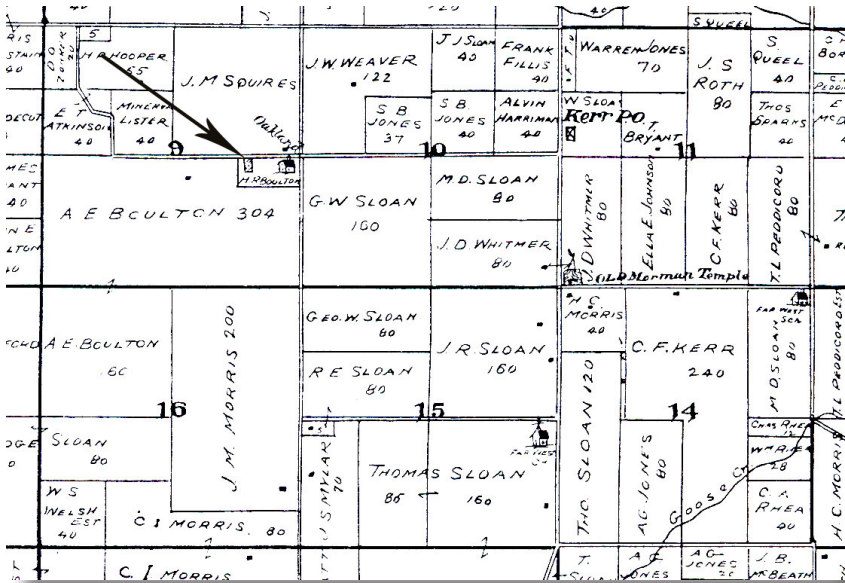 40
40
SQUEEL
5
RIS
STAIN
40
H R HOOPER
55
J. M SQUIRES
J. W. WEAVER
122
J J SLOAN
40
FRANK
FILLIS
40
WARREN JONES
70
J. S
ROTH
80
S.
QUEEL
40
E T
ATKINSON
40
MINERVA
LISTER
40
Oakland
S B
JONES
37
S B
JONES
40
ALVIN
HARRIMAN
40
W SLOAN
Kerr Po.
T.
BRYANT
THOS
SPARKS
40
9
10
11
H.R BOULTON
A E BOULTON 304
G. W SLOAN
160
M. D. SLOAN
80
J. D. WHITMER
80
J. D WHITMER
80
ELLA E. JOHNSON
80
C. F. KERR
80
T. L PEDDICORD
80
OLD Morman Temple
A E. BOULTON
J. M. MORRIS 200
GEO. W. SLOAN
80
R E SLOAN
80
J. R. SLOAN
160
H. C.
MORRIS
40
C. F. KERR
240
FAR WEST
SCH
M D, SLOAN
80
T. L PEDDICORD EST
16
15
14
SLOAN
80
W S
WELSH
EST
40
C I MORRIS. 80
J S MYLAR
70
THOMAS SLOAN
86
160
FAR WEST
CH
THO SLOAN 120
A G. JONES
80
Goose Cr
CHAS RHEA
12
28
C. A
RHEA
40
H C. MORRIS
C. I MORRIS
T.
A G
JONES
A G
JONES
J. B.
McBEATH